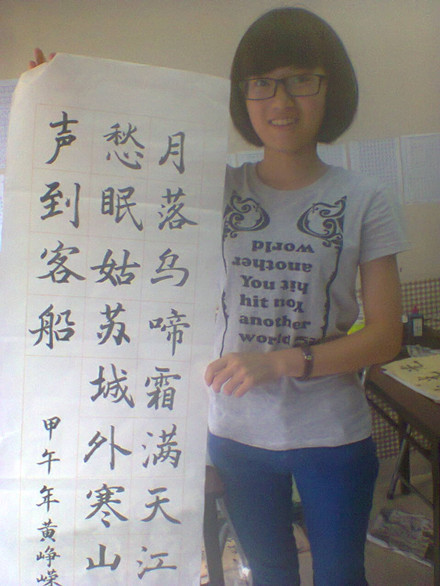 月落乌啼霜满天江
愁眠姑苏城外寒山
声到客船
甲午年黄峥嵘
world
another
hit You
hit You
another
world